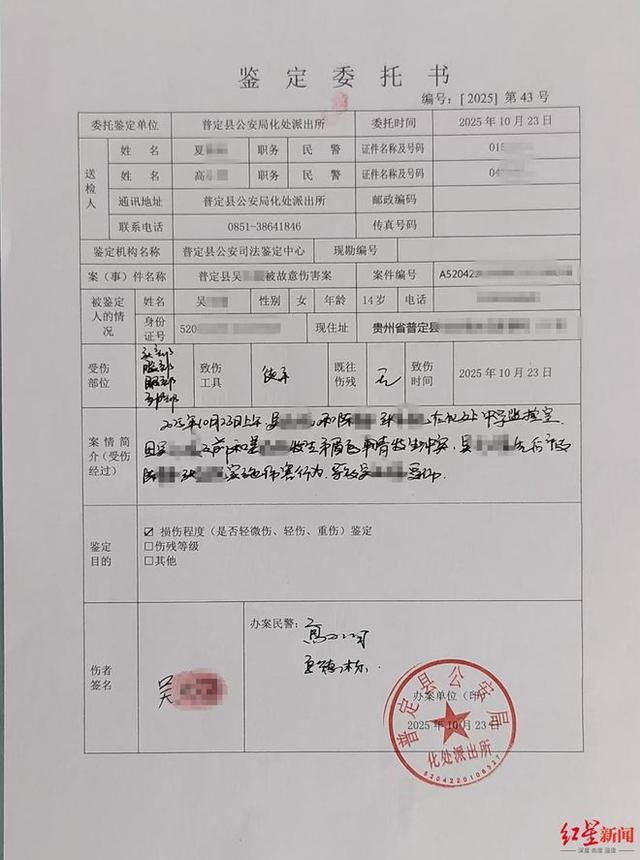 鉴定委托书
编号：[2025] 第 43 号
委托鉴定单位 普定县公安局化处派出所 委托时间 2025 年 10 月 23 日
送检人
姓 名 夏 职务 民 警 证件名称及号码 015
姓 名 高 职务 民 警 证件名称及号码 04
通讯地址 普定县公安局化处派出所 邮政编码
联系电话 0851-38641846 传真号码
鉴定机构名称 普定县公安司法鉴定中心 现勘编号
案（事）件名称 普定县吴 被故意伤害案 案件编号 A52042
被鉴定人的情况
姓名 吴 性别 女 年龄 14 岁 电话
身份证号 520 现住址 贵州省普定县
受伤部位 头部 腿部 致伤工具 徒手 既往伤残 无 致伤时间 2025 年 10 月 23 日
案情简介（受伤经过）
2025年10月23日上午 吴 和陈 到 在化处中学监控室
因吴 之前和 发生矛盾 事情发生冲突，吴 先后被
陈 实施伤害行为，导致吴 受伤.
鉴定目的
☑ 损伤程度（是否轻微伤、轻伤、重伤）鉴定
□伤残等级
□其他
伤者签名 吴
办案民警：
办案单位（印）
2025 年 10 月 23 日
普定县公安局
化处派出所
5204220108327
红星新闻
深度 态度 温度